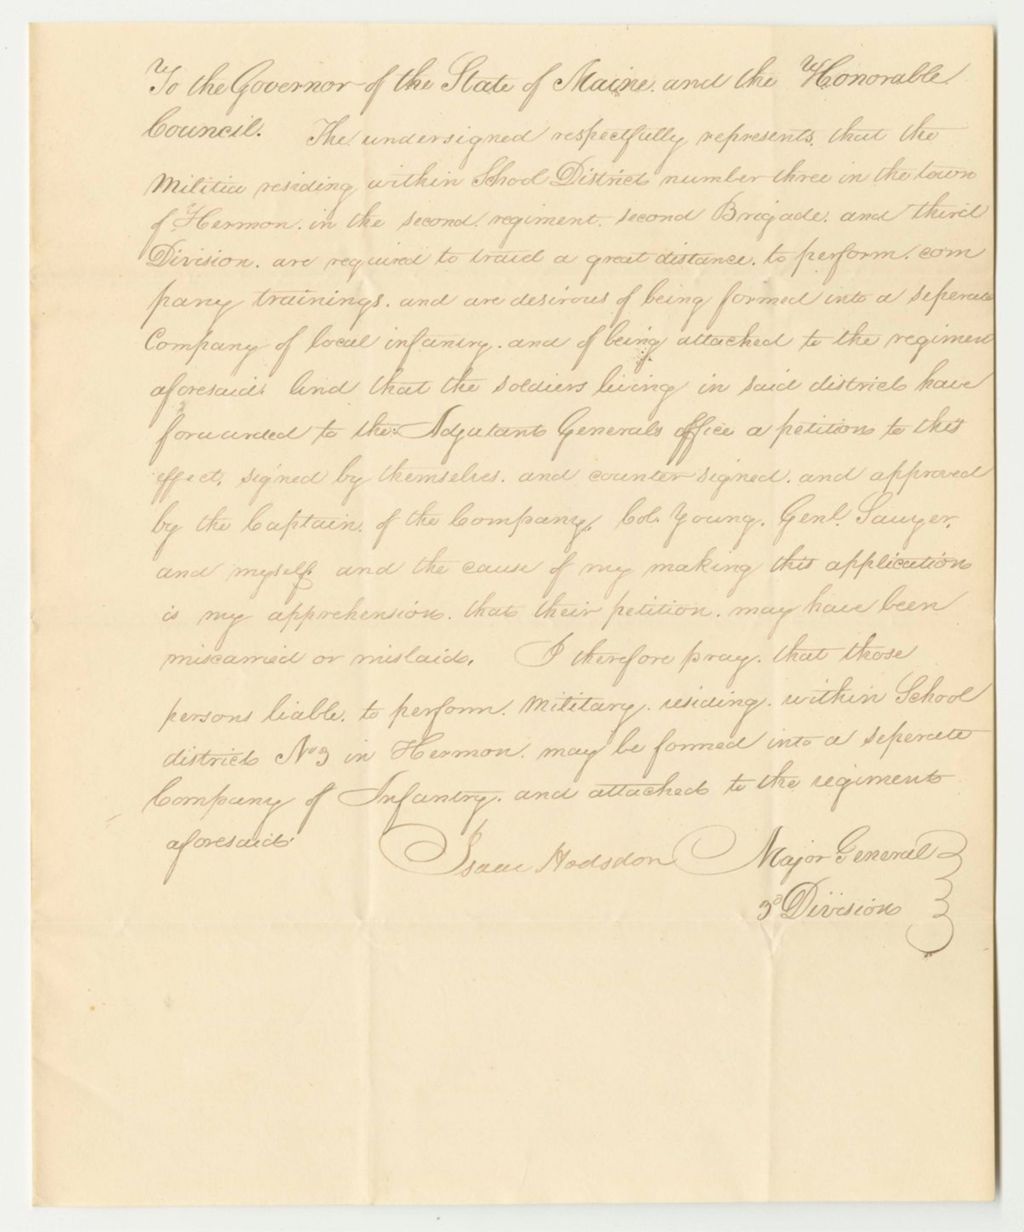 To the Governor of the State of Maine. and the Honorable
Council. The undersigned respectfully represents. that the
Militia residing within School District number three in the town
of Hermon. in the second regiment. second Brigade. and third
Division. are required to traid a great distance. to perform. com
pany trainings. and are desirous of being formed into a seperate
Company of local infantry. and of being attached to the regiment
aforesaid. And that the soldiers living in said district have
forwarded to the Adjutant Generals office a petition to this
effect. signed by themselves. and counter signed. and approved
by the Captain. of the Company, Col. Young. Genl. Sawyer.
and myself. and the cause of my making this application
is my apprehension. that their petition. may have been
miscarried or mislaid. I therefore pray. that those
persons liable. to perform. Military. residing. within School
district No 3 in Hermon. may be formed into a seperate
Company of Infantry. and attached to the regiment
aforesaid.
Isaac Hodsdon Major General
3d Division